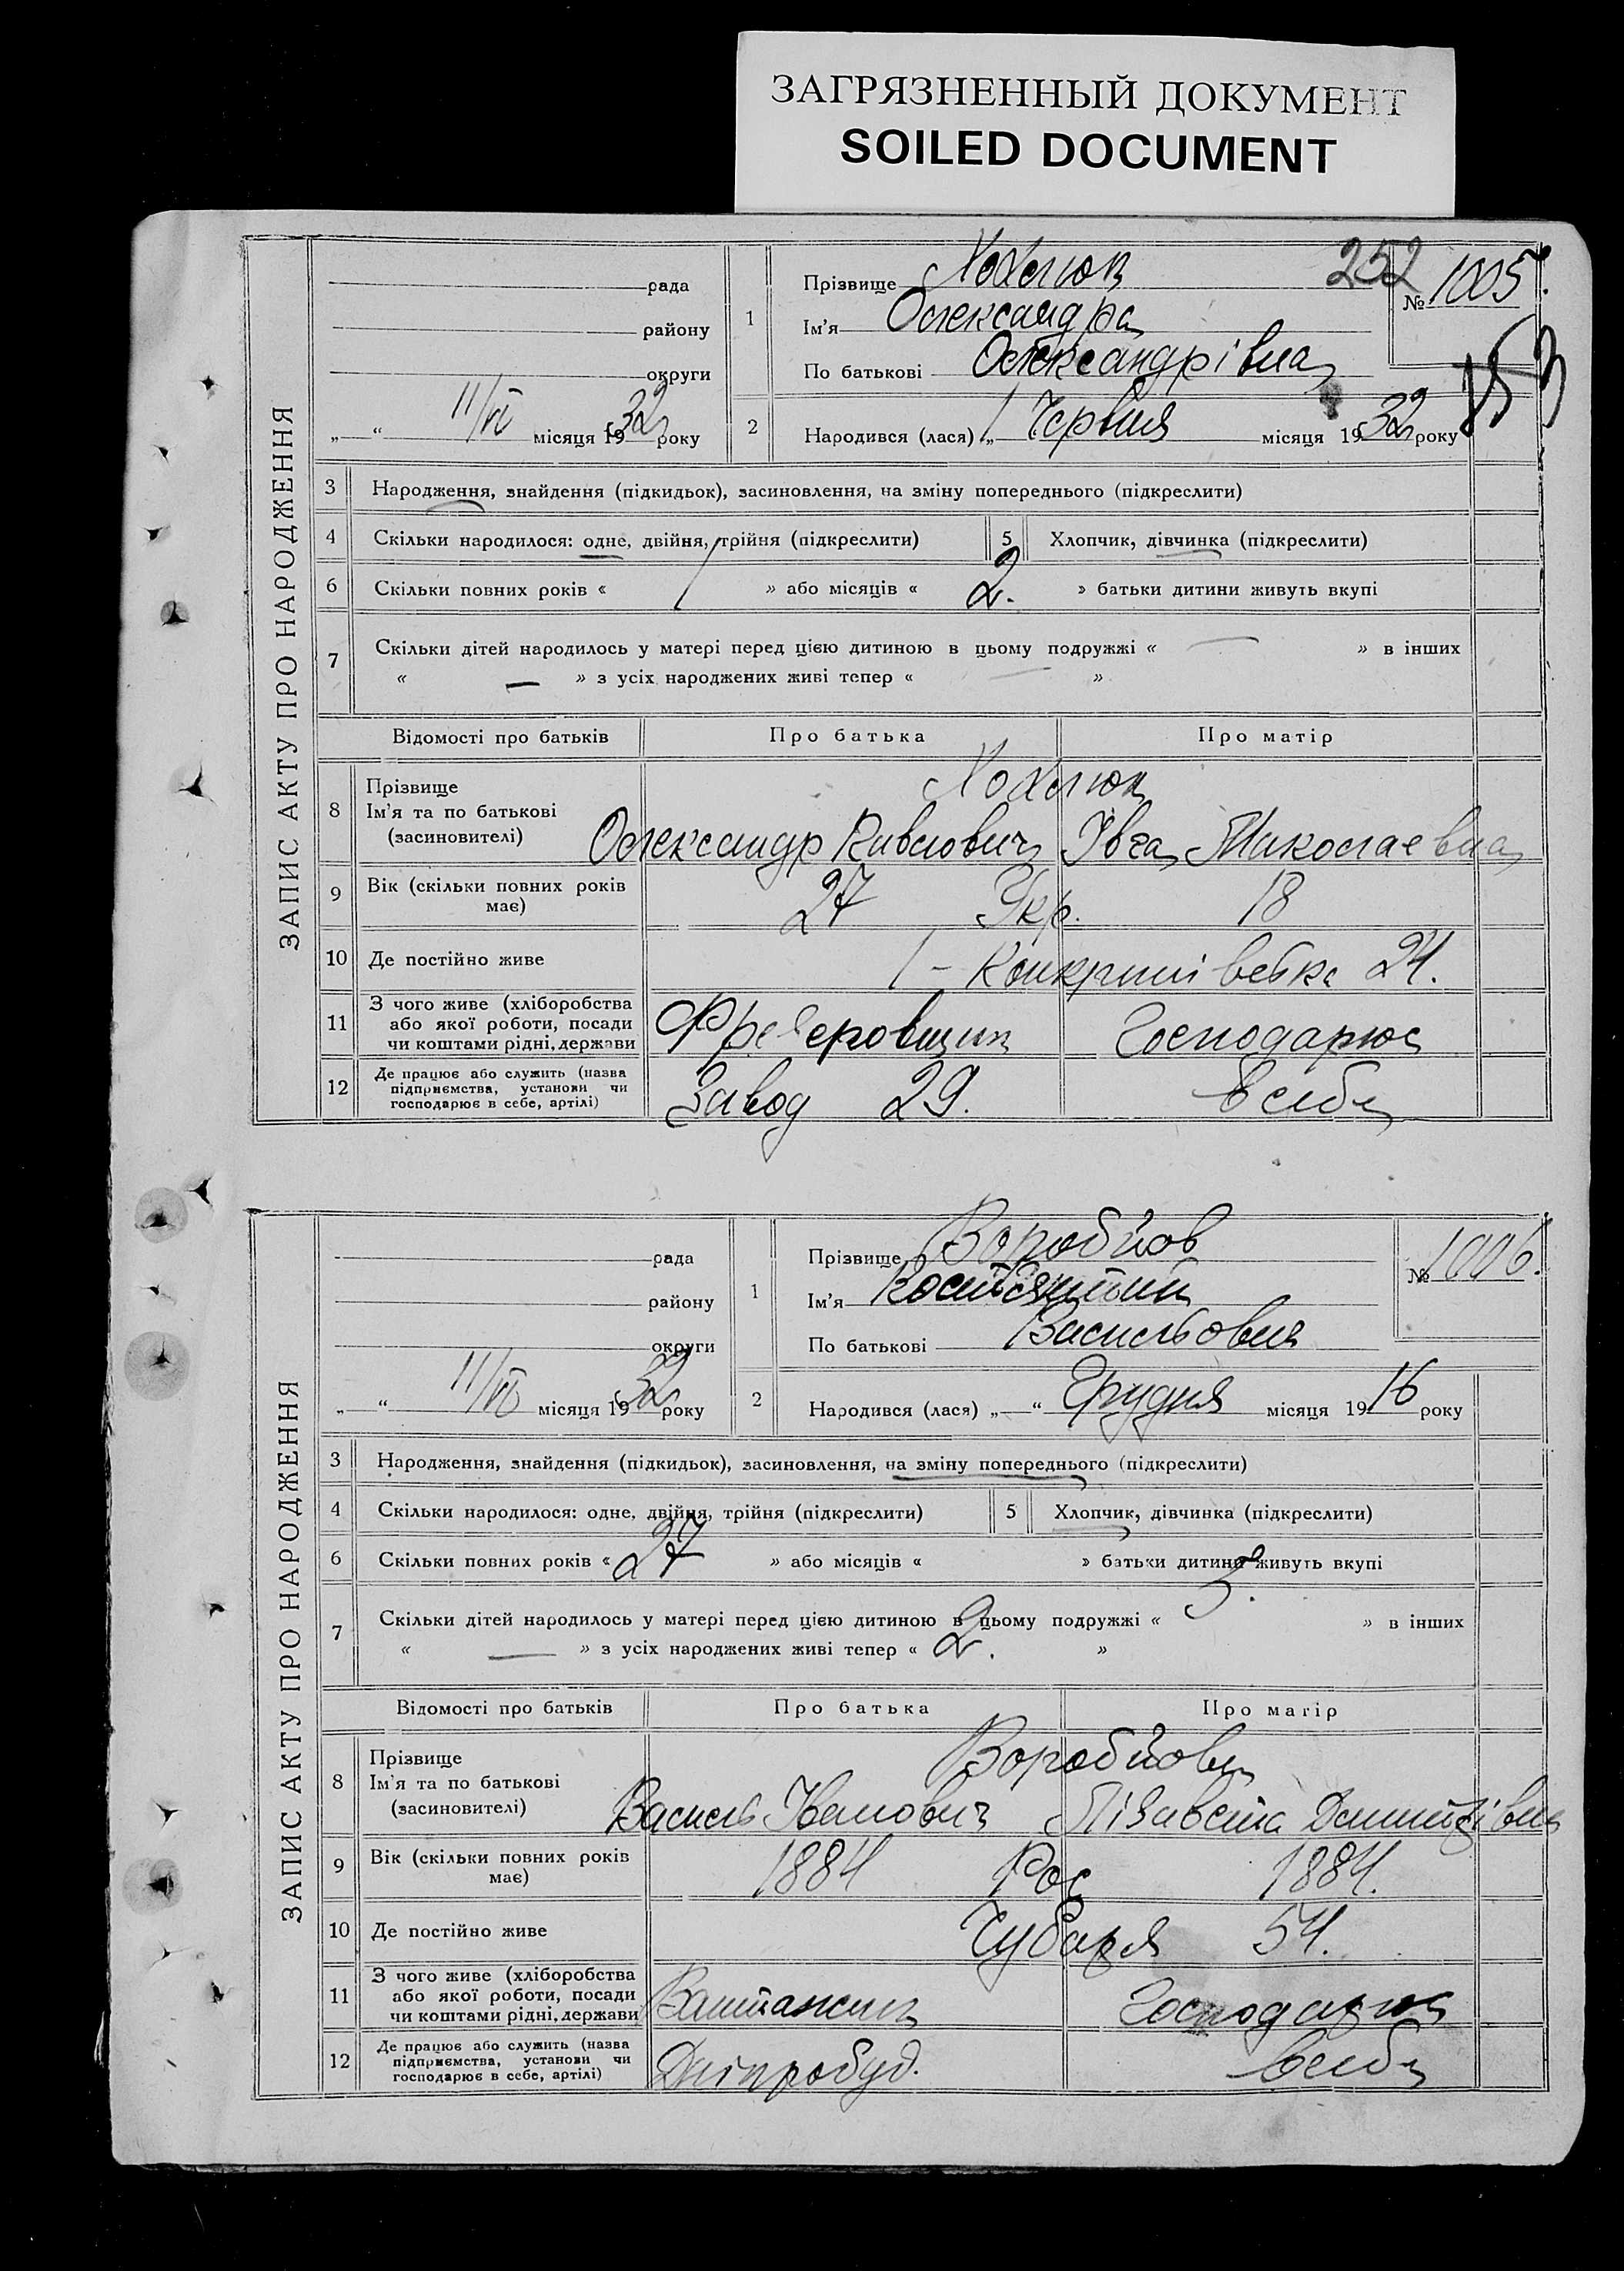 ЗАГРЯЗНЕННЫЙ ДОКУМЕНТ
SOILED DOCUMENT
252
ЗАПИС АКТУ ПРО НАРОДЖЕННЯ
рада
району
округи
„ “ 11/VI місяця 1932 року
1
Прізвище Хохлюк
Ім'я Олександра
По батькові Олександрівна
№ 1005.
153
2
Народився (лася) „1 Червня місяця 1932 року
3 Народження, знайдення (підкидьок), засиновлення, на зміну попереднього (підкреслити)
4 Скільки народилося: одне, двійня, трійня (підкреслити) 5 Хлопчик, дівчинка (підкреслити)
6 Скільки повних років « 1 » або місяців « 2. » батьки дитини живуть вкупі
7 Скільки дітей народилось у матері перед цією дитиною в цьому подружжі « — » в інших
« — » з усіх народжених живі тепер « — »
Відомості про батьків Про батька Про матір
8 Прізвище Хохлюк
Ім'я та по батькові
(засиновителі) Олександр Павлович Івга Миколаевна
9 Вік (скільки повних років
має) 27 Укр. 18
10 Де постійно живе 24.
11 З чого живе (хліборобства
або якої роботи, посади
чи коштами рідні, держави Фрезеровщик Господарює
12 Де працює або служить (назва
підприємства, установи чи
господарює в себе, артілі) Завод 29. в себе
ЗАПИС АКТУ ПРО НАРОДЖЕННЯ
рада
району
округи
„ “ 11/VI місяця 1932 року
1
Прізвище Воробйов
Ім'я Костянтин
По батькові Васильович
№ 1006.
2
Народився (лася) „—“ Грудня місяця 1916 року
3 Народження, знайдення (підкидьок), засиновлення, на зміну попереднього (підкреслити)
4 Скільки народилося: одне, двійня, трійня (підкреслити) 5 Хлопчик, дівчинка (підкреслити)
6 Скільки повних років « 27 » або місяців « » батьки дитини живуть вкупі
7 Скільки дітей народилось у матері перед цією дитиною в цьому подружжі « 3. » в інших
« — » з усіх народжених живі тепер « 2. »
Відомості про батьків Про батька Про матір
8 Прізвище Воробйови
Ім'я та по батькові
(засиновителі) Василь Іванович Лізавета Дмитрівна
9 Вік (скільки повних років
має) 1884 Рос 1884.
10 Де постійно живе Чубаря 54.
11 З чого живе (хліборобства
або якої роботи, посади
чи коштами рідні, держави Вантажник Господарює
12 Де працює або служить (назва
підприємства, установи чи
господарює в себе, артілі) Дніпробуд. в себе